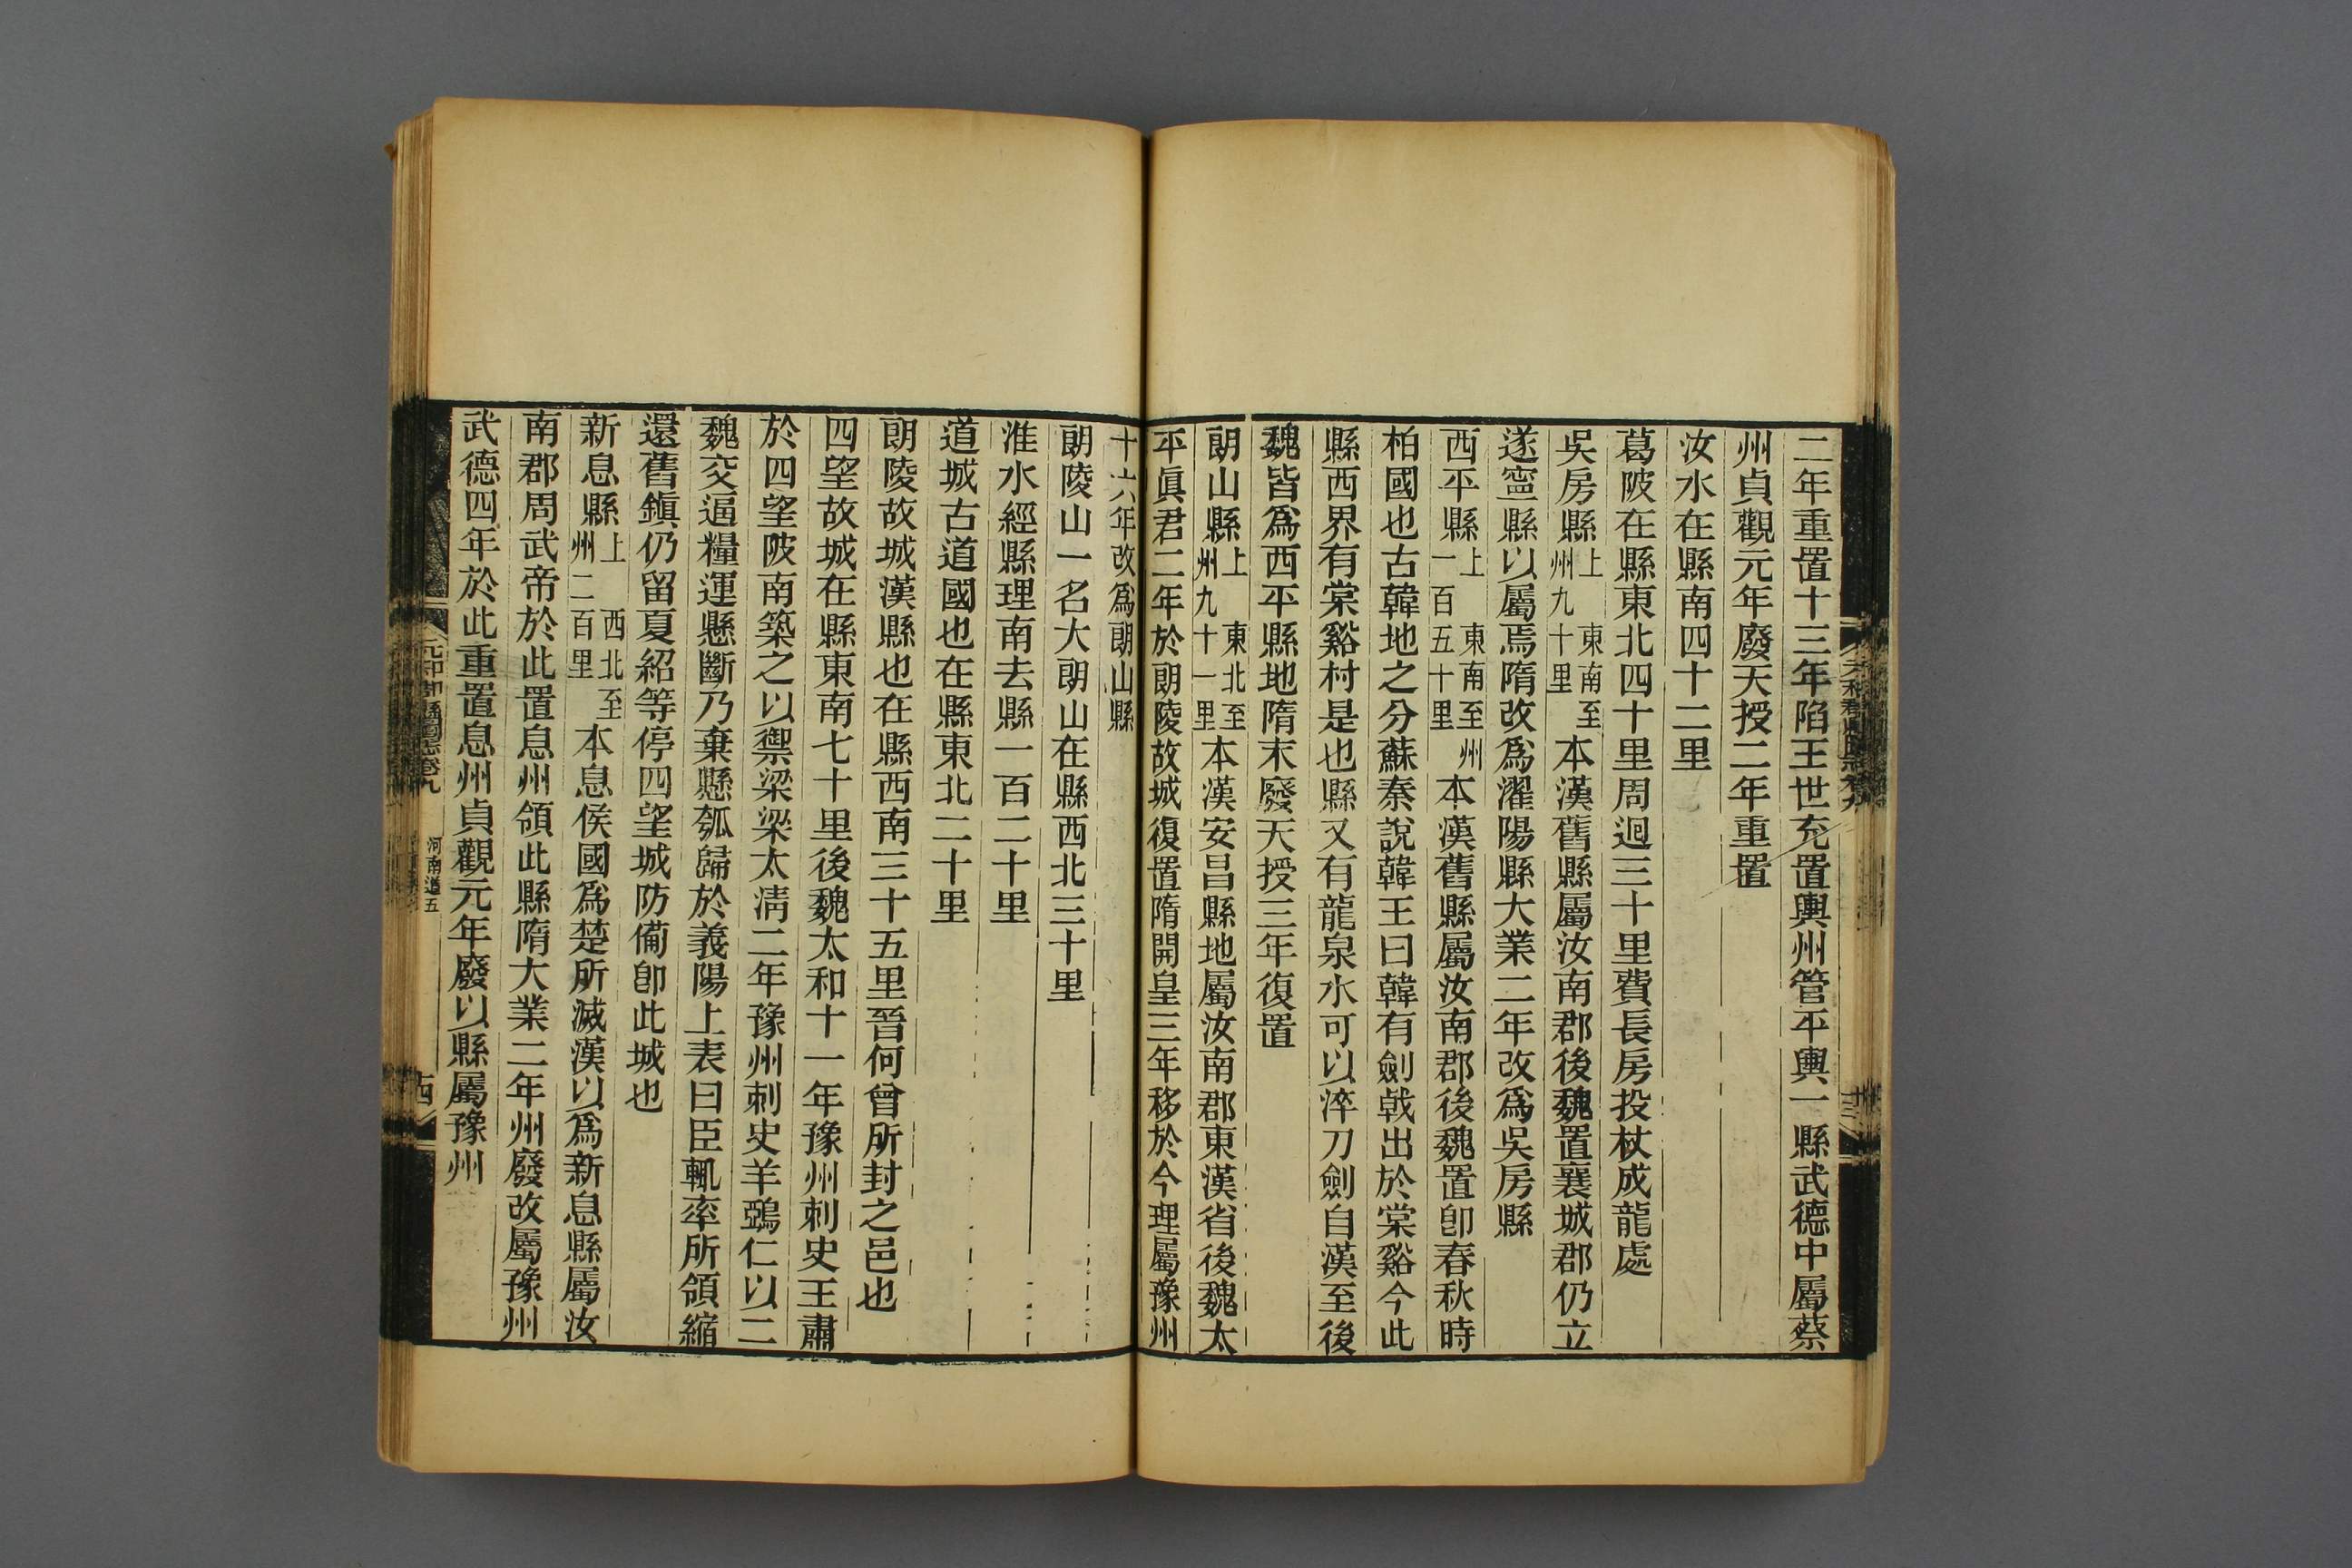 二年重置十三年陷王世充置輿州管平輿一縣武德中屬蔡
州貞觀元年廢天授二年重置
汝水在縣南四十二里
葛陂在縣東北四十里周迴三十里費長房投杖成龍處
吳房縣上東南至州九十里本漢舊縣屬汝南郡後魏置襄城郡仍立
遂寧縣以屬焉隋改為濯陽縣大業二年改為吳房縣
西平縣上東南至州一百五十里本漢舊縣屬汝南郡後魏置卽春秋時
柏國也古韓地之分蘇秦說韓王曰韓有劍戟出於棠谿今此
縣西界有棠谿村是也縣又有龍泉水可以淬刀劍自漢至後
魏皆為西平縣地隋末廢天授三年復置
朗山縣上東北至州九十一里本漢安昌縣地屬汝南郡東漢省後魏太
平眞君二年於朗陵故城復置隋開皇三年移於今理屬豫州
十六年改為朗山縣
朗陵山一名大朗山在縣西北三十里
淮水經縣理南去縣一百二十里
道城古道國也在縣東北二十里
朗陵故城漢縣也在縣西南三十五里晉何曾所封之邑也
四望故城在縣東南七十里後魏太和十一年豫州刺史王肅
於四望陂南築之以禦梁梁太清二年豫州刺史羊鵶仁以二
魏交逼糧運懸斷乃棄懸瓠歸於義陽上表曰臣輒率所領縮
還舊鎭仍留夏紹等停四望城防備卽此城也
新息縣上西北至州二百里本息侯國為楚所滅漢以為新息縣屬汝
南郡周武帝於此置息州領此縣隋大業二年州廢改屬豫州
武德四年於此重置息州貞觀元年廢以縣屬豫州
元和郡縣圖志卷九 河南道五